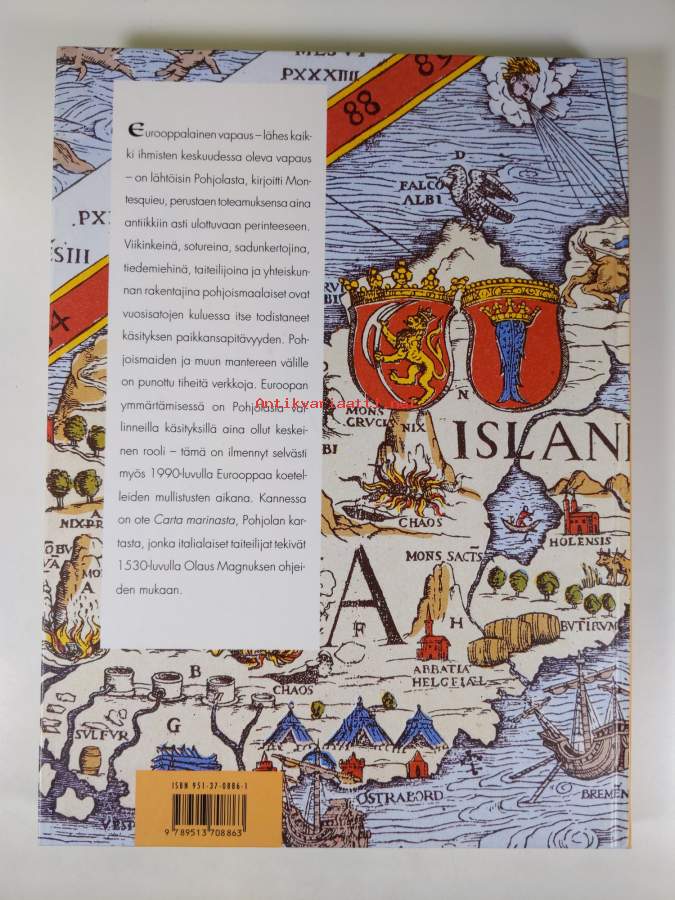 MESVI
PXXXIIII
88
89
Eurooppalainen vapaus – lähes kaik-
ki ihmisten keskuudessa oleva vapaus
– on lähtöisin Pohjolasta, kirjoitti Mon-
tesquieu, perustaen toteamuksensa aina
antiikkiin asti ulottuvaan perinteeseen.
Viikinkeinä, sotureina, sadunkertojina,
tiedemiehinä, taiteilijoina ja yhteiskun-
nan rakentajina pohjoismaalaiset ovat
vuosisatojen kuluessa itse todistaneet
käsityksen paikkansapitävyyden. Poh-
joismaiden ja muun mantereen välille
on punottu tiheitä verkkoja. Euroopan
ymmärtämisessä on Pohjolasta val-
linneilla käsityksillä aina ollut keskei-
nen rooli – tämä on ilmennyt selvästi
myös 1990-luvulla Eurooppaa koetel-
leiden mullistusten aikana. Kannessa
on ote Carta marinasta, Pohjolan kar-
tasta, jonka italialaiset taiteilijat tekivät
1530-luvulla Olaus Magnuksen ohjei-
den mukaan.
Antikvariaatti.net
D
FALCO
ALBI
MONS
CRVCIS
NIX
N
ISLAN
CHAOS
HOLENSIS
MONS SACTS
A
F
H
BVTIRVM
ABBATIA
HELGFIAL
B
CHAOS
SVLFVR
G
OSTRABORD
BREMEN
VEST
ISBN 951-37-0886-1
9 789513 708863